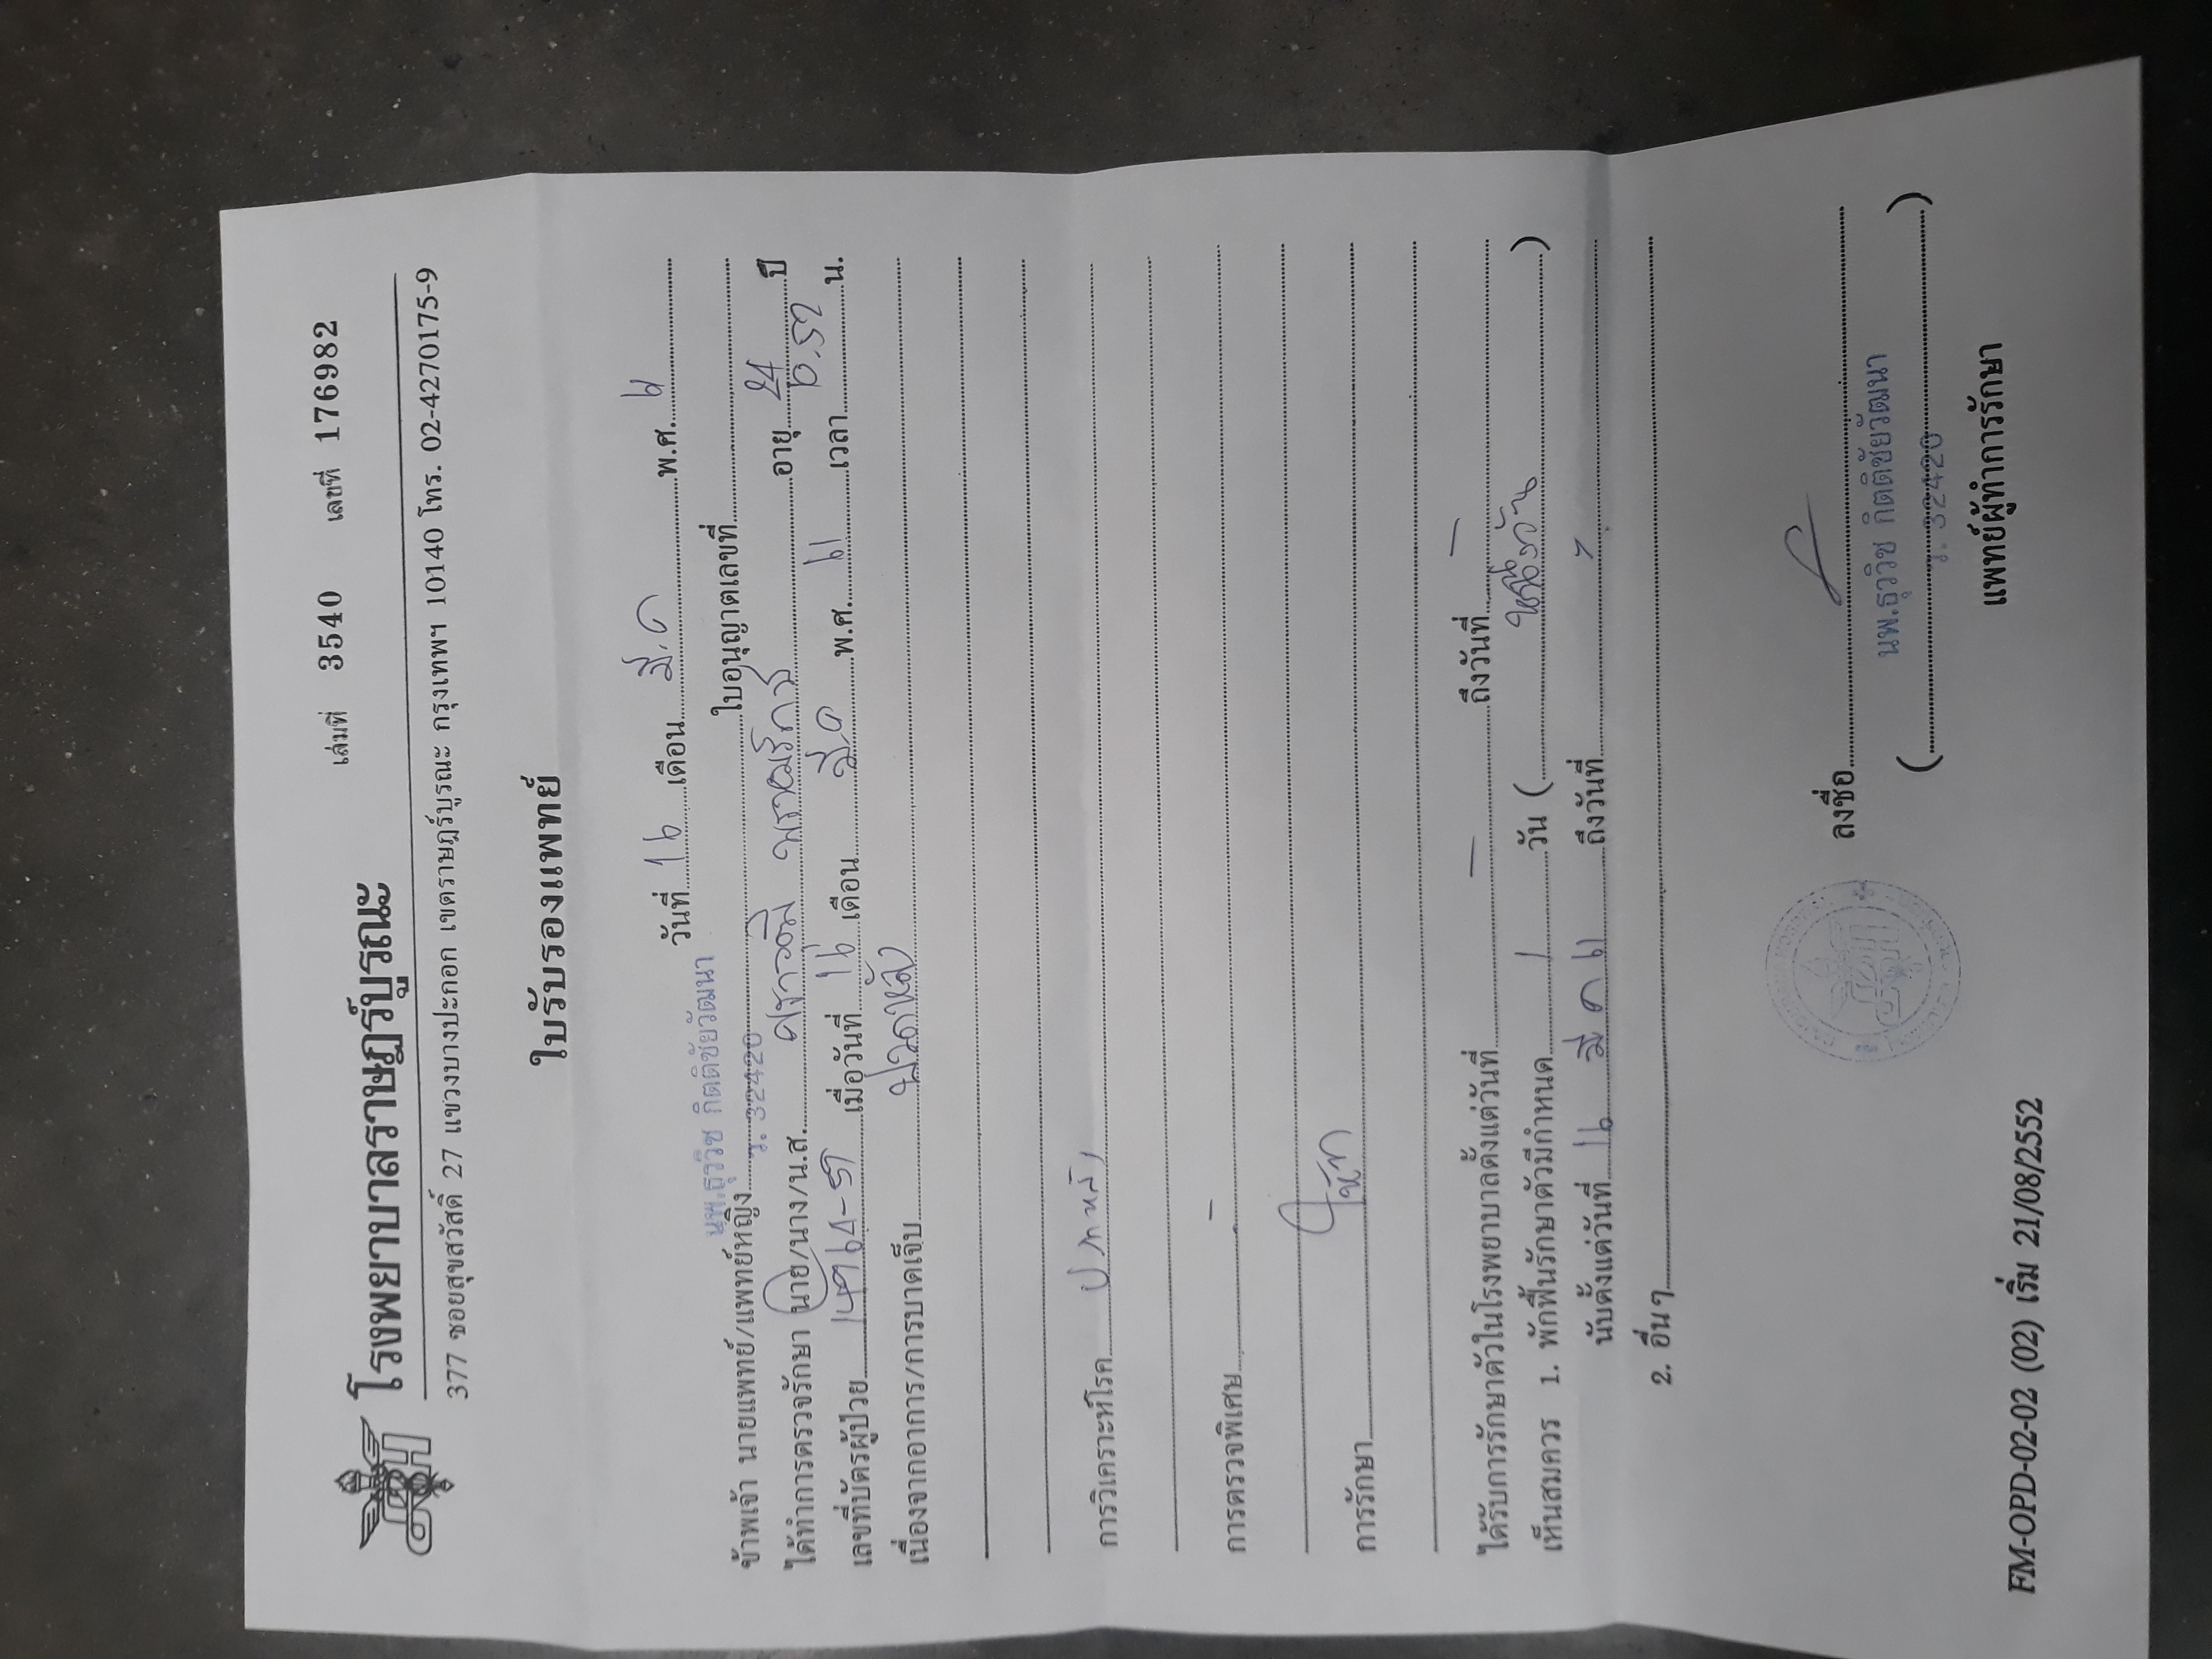 เล่มที่ 3540 เลขที่ 176982
โรงพยาบาลราษฎร์บูรณะ
377 ซอยสุขสวัสดิ์ 27 แขวงบางปะกอก เขตราษฎร์บูรณะ กรุงเทพฯ 10140 โทร. 02-4270175-9
ใบรับรองแพทย์
วันที่ 16 เดือน มี.ค พ.ศ. 61
ข้าพเจ้า นายแพทย์/แพทย์หญิง นพ.ธุววิช กิตติชัยวัฒนา ใบอนุญาตเลขที่
ว. 32420
ได้ทำการตรวจรักษา นาย/นาง/น.ส. ศราวุฒิ อายุ 24 ปี
เลขที่บัตรผู้ป่วย เมื่อวันที่ 16 เดือน มี.ค พ.ศ. 61 เวลา 10.52 น.
เนื่องจากอาการ/การบาดเจ็บ ปวดหลัง
การวิเคราะห์โรค ปวดหลัง
การตรวจพิเศษ -
การรักษา
ได้รับการรักษาตัวในโรงพยาบาลตั้งแต่วันที่ - ถึงวันที่ -
เห็นสมควร 1. พักฟื้นรักษาตัวมีกำหนด 1 วัน ( หนึ่งวัน )
นับตั้งแต่วันที่ 16 มี ค 61 ถึงวันที่ -
2. อื่นๆ
ลงชื่อ
( นพ.ธุววิช กิตติชัยวัฒนา )
ว. 32420
แพทย์ผู้ทำการรักษา
FM-OPD-02-02 (02) เริ่ม 21/08/2552